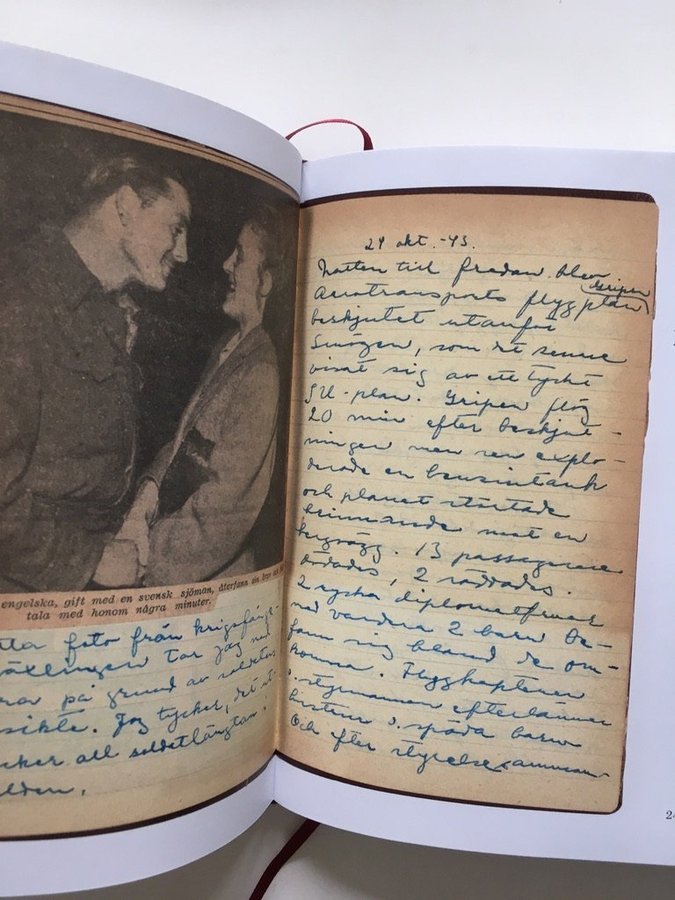 engelska, gift med en svensk sjöman, återfann sin bror och
tala med honom några minuter.
foto från krigsfånge-
växlingen tar jag med
på grund av soldatens
sikte. Jag tycker, det ut-
all soldatlängtan i
lden.
24 okt. -43.
Natten till fredan blev
Aerotransports flygplan
(Gripen)
beskjutet utanför
Smögen, som det senare
visat sig av ett tyskt
JU-plan. Gripen flög
20 min efter beskjut-
ningen men sen explo-
derade en bensintank
och planet störtade
brinnande mot en
bergvägg. 13 passagerare
dödades, 2 räddades.
2 ryska diplomatfruar
med vardera 2 barn be-
fann sig bland de om-
komna. Flygkaptenen
o. styrmannen efterlämnar
hustrur o. späda barn
Och efter styrelsesamman-
24